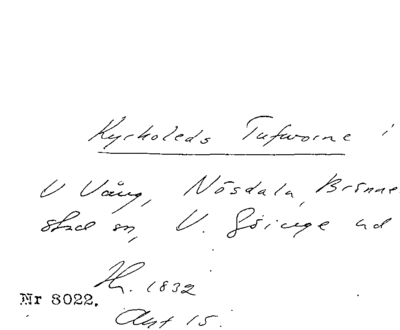 Kyrkoleds Tufworne i
V Vång, Nösdala, Brönne
stad sn, V. Göinge hd
Hr. 1832
Nr 8022.
Akt 15.